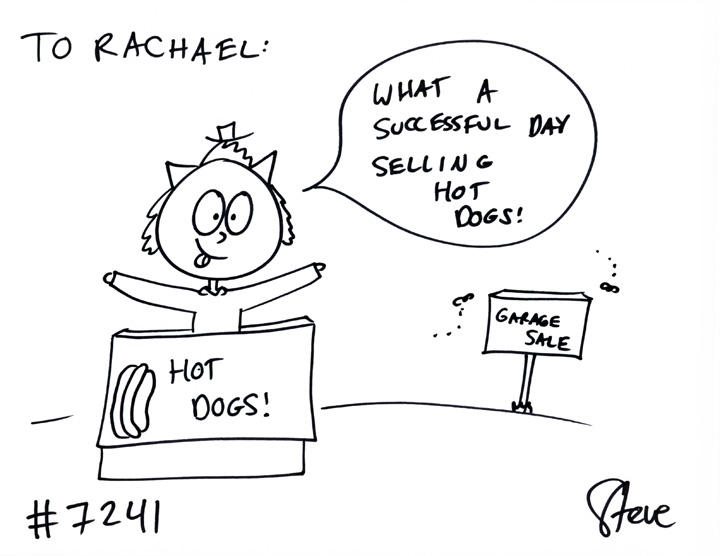 TO RACHAEL:
WHAT A
SUCCESSFUL DAY
SELLING
HOT
DOGS!
GARAGE
SALE
HOT
DOGS!
#7241
Steve